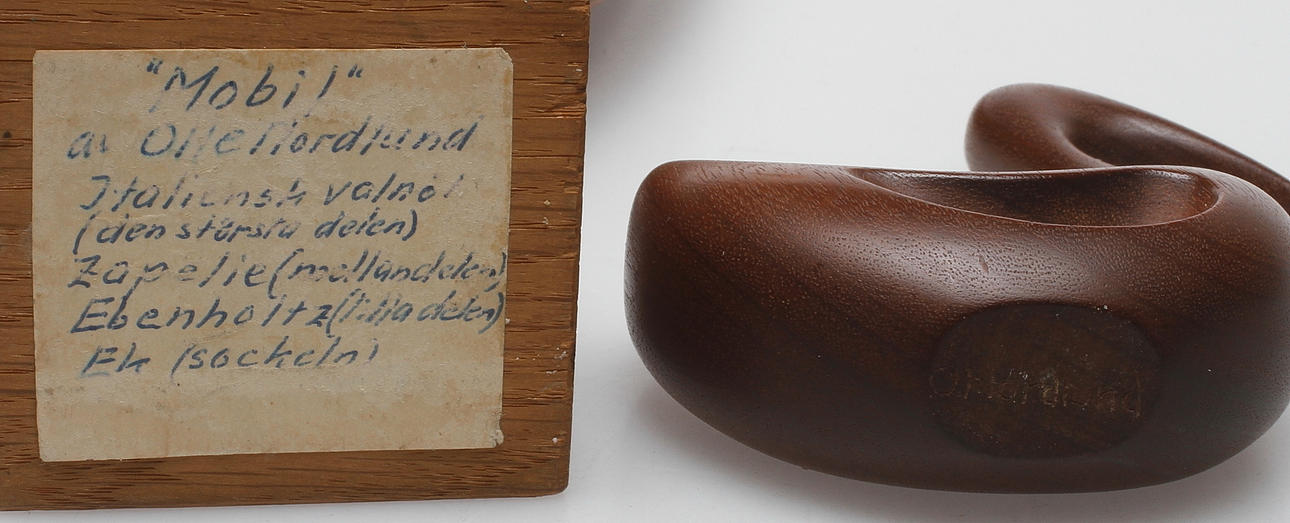 "Mobil"
av Olle Nordlund
Italiensk valnöt
(den största delen)
Zapelie (mellandelen)
Ebenholtz (lilla delen)
Ek (sockeln)
O Nordlund